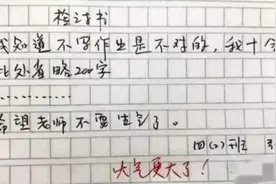 检讨书
我知道不写作业是不对的,我十分
此处省略200字
…………
希望老师不要生气了。
四(2)班
老气更大了!